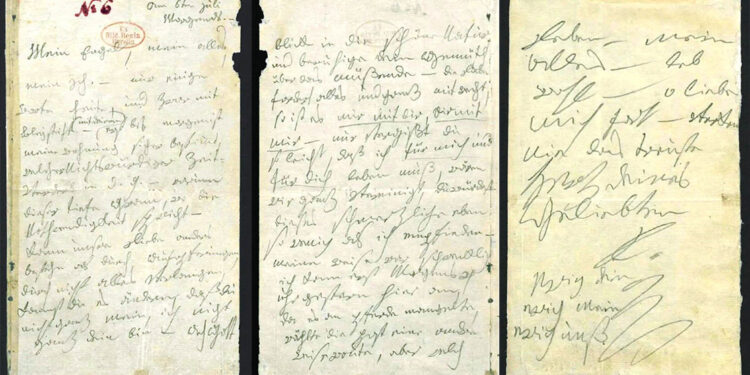 No 6
am 6ten Juli
Morgends. –
Mein Engel, mein alles,
mein Ich. – nur einige
Worte heute, und zwar mit
Bleystift (mit deinem) – erst bis morgen ist
meine Wohnung sicher bestimmt,
welcher Nichtswürdiger Zeit-
verderb in d. g. – warum
dieser tiefe Gram, wo die
Nothwendigkeit spricht –
Kann unsre Liebe anders
bestehn als durch Aufopferungen,
durch nicht alles verlangen,
kannst du es ändern, daß du
nicht ganz mein, ich nicht
ganz dein bin – Ach Gott
blick in die schöne Natur
und beruhige dein Gemüth
über das müßende – die Liebe
fordert alles und ganz mit recht,
so ist es mir mit dir, dir mit
mir – nur vergißt du
so leicht, daß ich für mich und
für dich leben muß, wären
wir ganz vereinigt, du würdest
dieses schmerzliche eben
so wenig als ich empfinden –
meine Reise war schrecklich
ich kam erst Morgens 4
uhr gestern hier an,
da es an Pferde mangelte,
wählte die Post eine andre
Reiseroute, aber welch
leben – Mein
alles – leb
wohl – o liebe
mich fort – verken
nie das treuste
Herz deines
Geliebten
L.
ewig dein
ewig mein
ewig unß